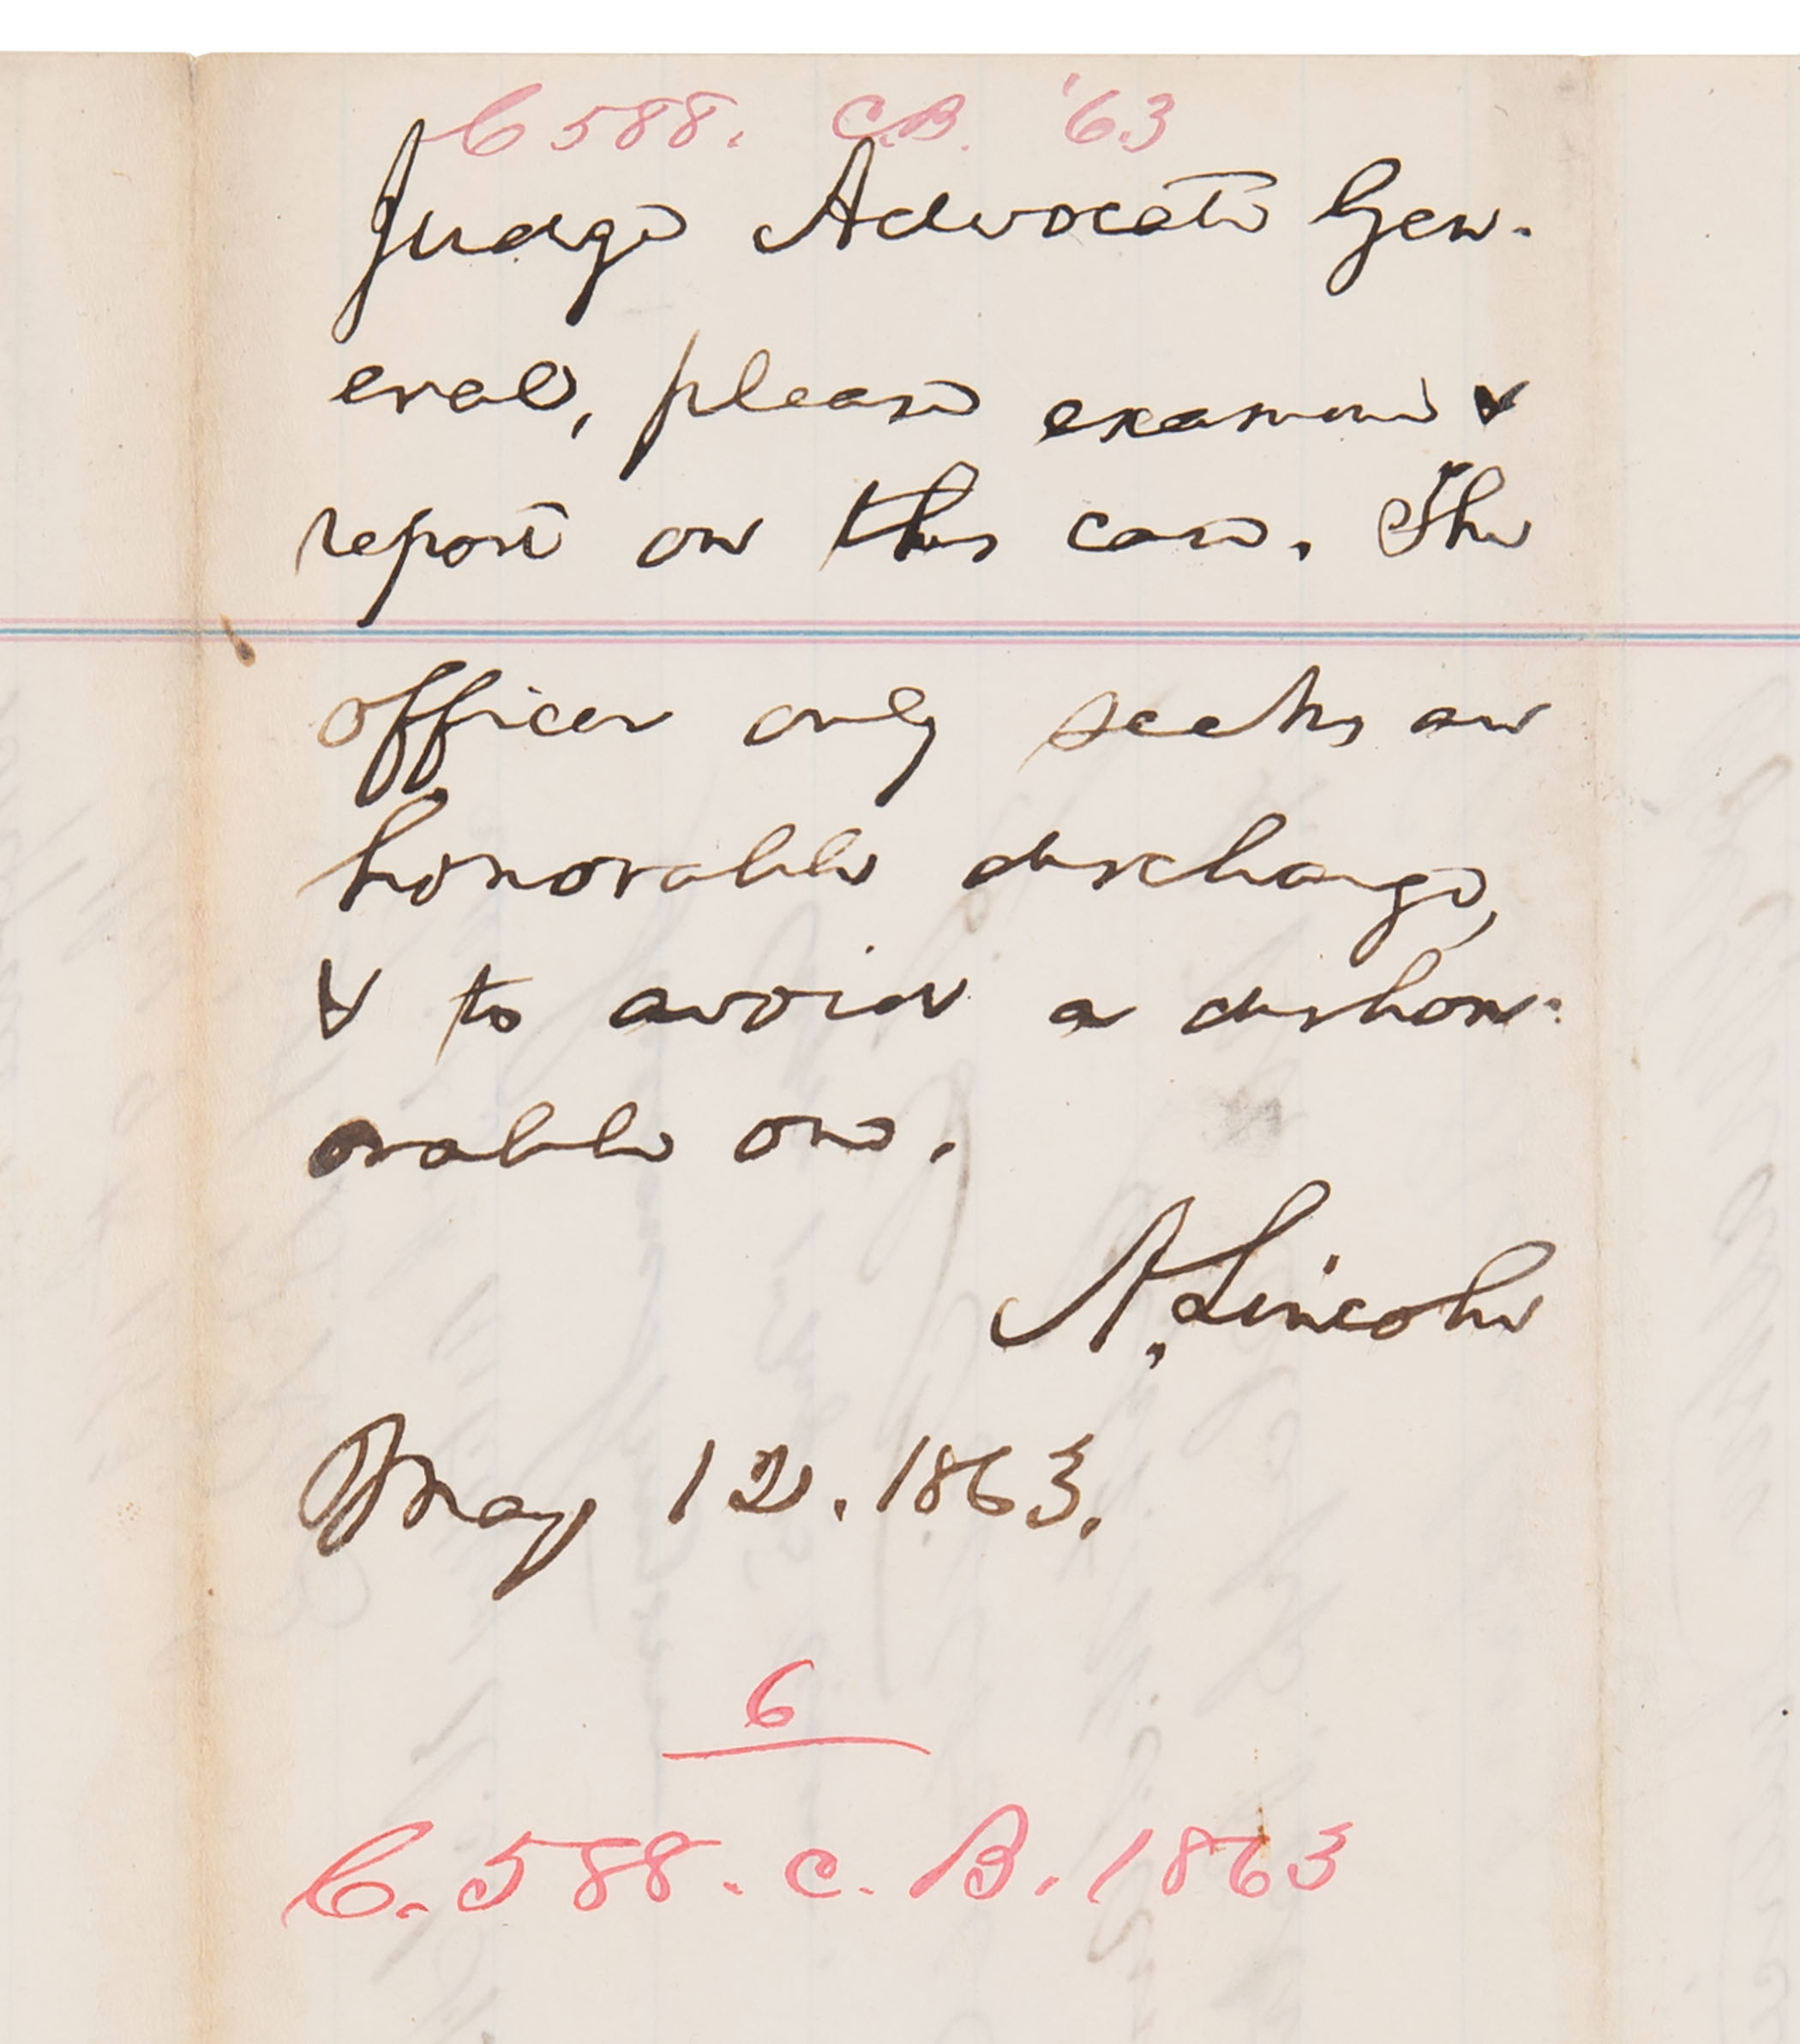 C 588. C.B. '63
Judge Advocate Gen-
eral, please examine &
report on this case. The
officer only seeks an
honorable discharge,
& to avoid a dishon-
orable one.
A. Lincoln
May 12. 1863.
6
C. 588. C. B. 1863